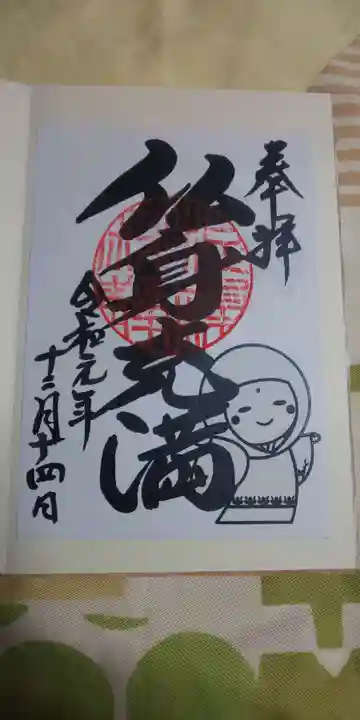 奉拝
仏身充満
令和元年
十二月十四日